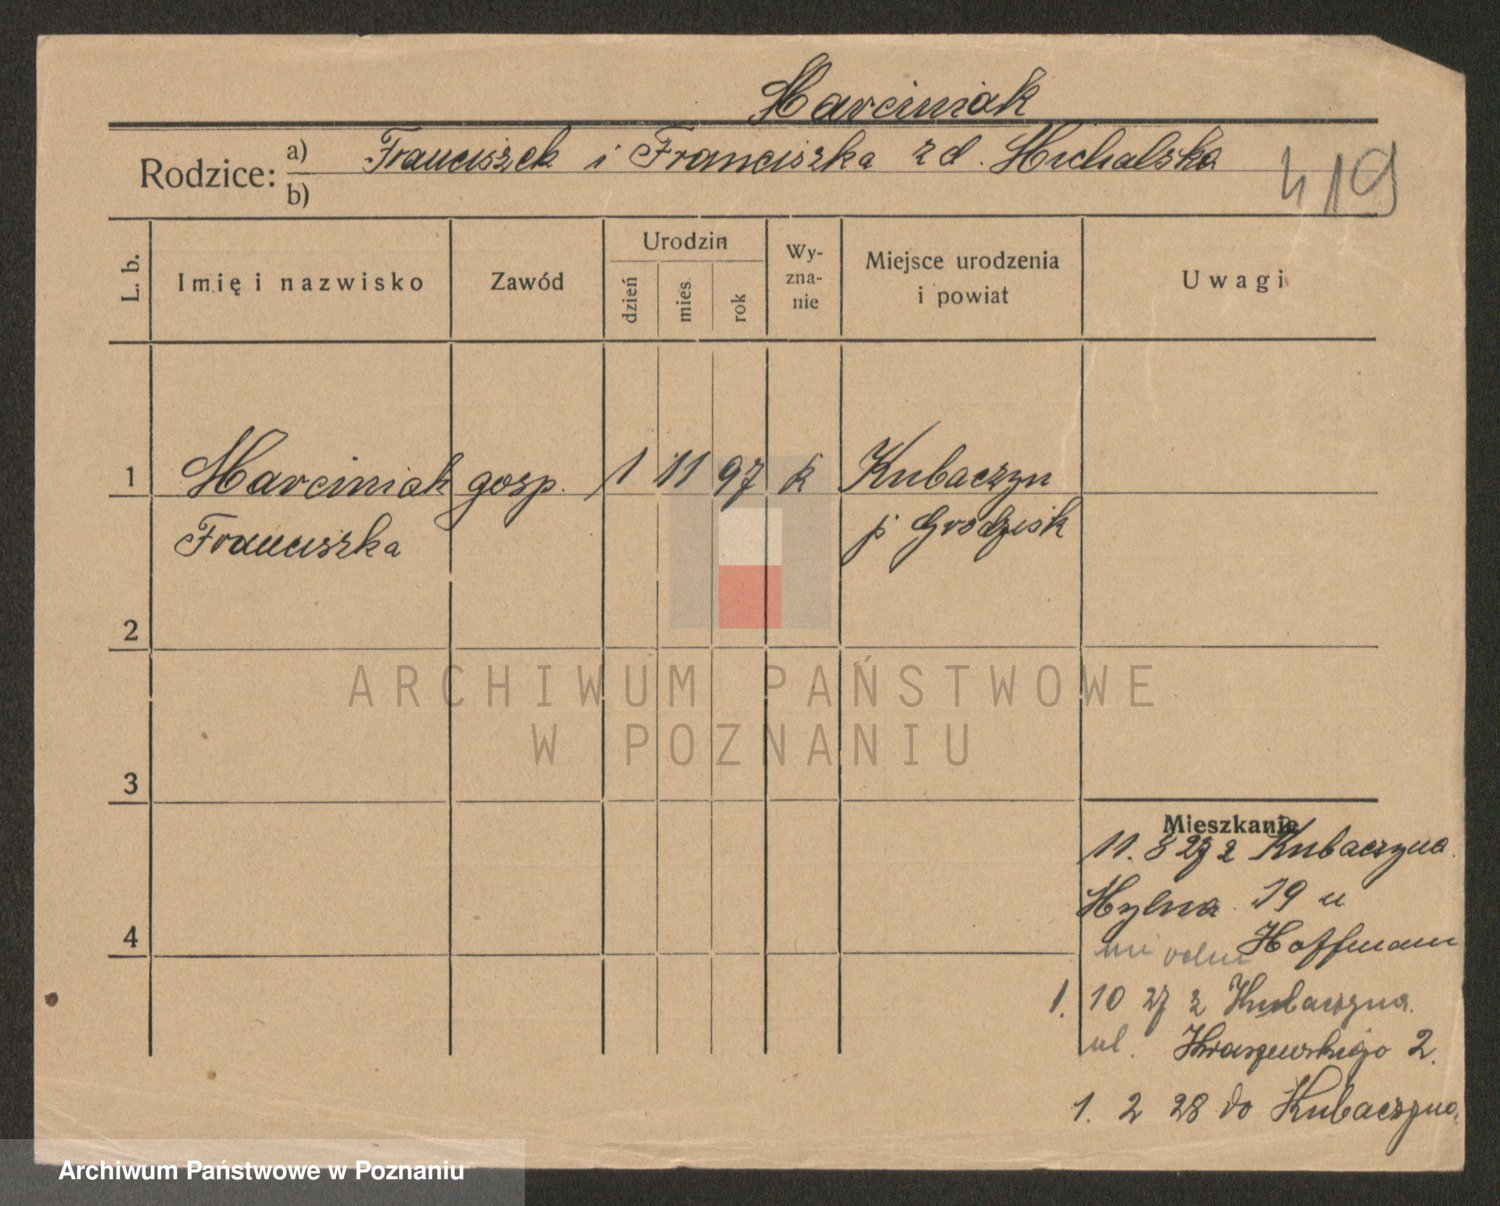 Marciniak
Rodzice: a) Franciszek i Franciszka z d. Michalska
b)
419
L. b.
Imię i nazwisko
Zawód
Urodzin
dzień
mies
rok
Wy-
zna-
nie
Miejsce urodzenia
i powiat
Uwagi
1 Marciniak gosp. 1 11 97 k Kubaczyn
Franciszka p Grodzisk
2
3
4
ARCHIWUM PAŃSTWOWE
W POZNANIU
Mieszkanie
11. 8 27 z Kubaczyna
Mylna 19 u
Hoffmann
1. 10 27 z Kubaczyna.
ul. Kraszewskiego 2.
1. 2 28 do Kubaczyna.
Archiwum Państwowe w Poznaniu